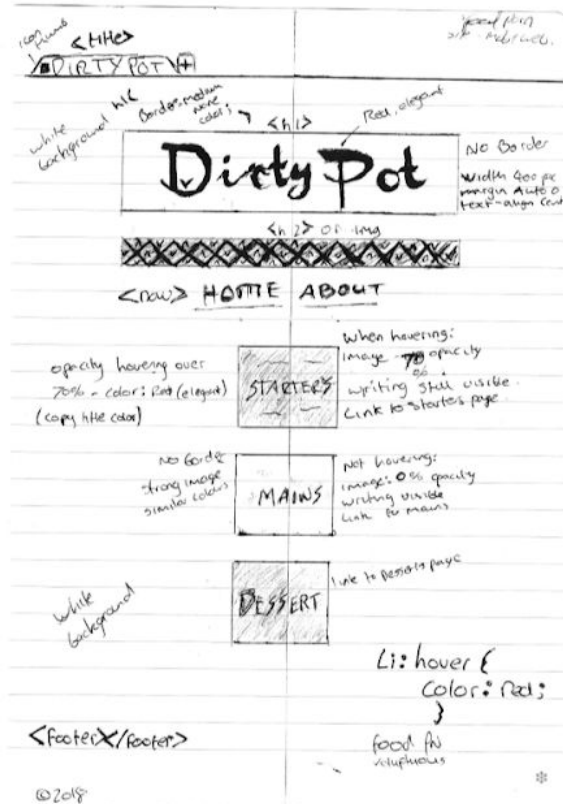 <title>
DIRTY POT +
white
background
Border: medium
none
color;
<h1>
Red, elegant
Dirty Pot
No Border
width 400 px
margin Auto 0
text-align Cent
<h2> or img
<nav> HOME ABOUT
opacity hovering over
70% - color: Red (elegant)
(copy title color)
STARTERS
When hovering:
image 70% opacity
writing still visible.
Link to starters page.
No Border
strong image
similar colours
MAINS
Not hovering:
image: 0% opacity
writing visible
Link for mains
DESSERT
link to desserts page
white
background
Li: hover {
Color: Red;
}
<footer></footer>
food
voluptuous
©2018